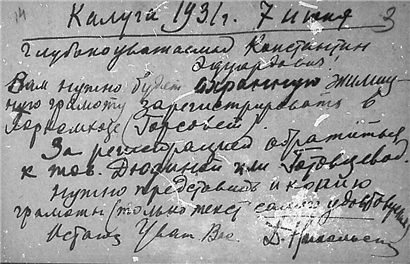 14
3
Калуга 1931г. 7 июня
Глубокоуважаемый Константин
Эдуардович!
Вам нужно будет охранную жилищ-
ную грамоту зарегистрировать в
Горсовета.
За регистрацией обратитесь
к тов. Дюдиной или Готовцевой.
Нужно представить и копию
грамоты (только текст самого
Остаюсь Уваж Вас